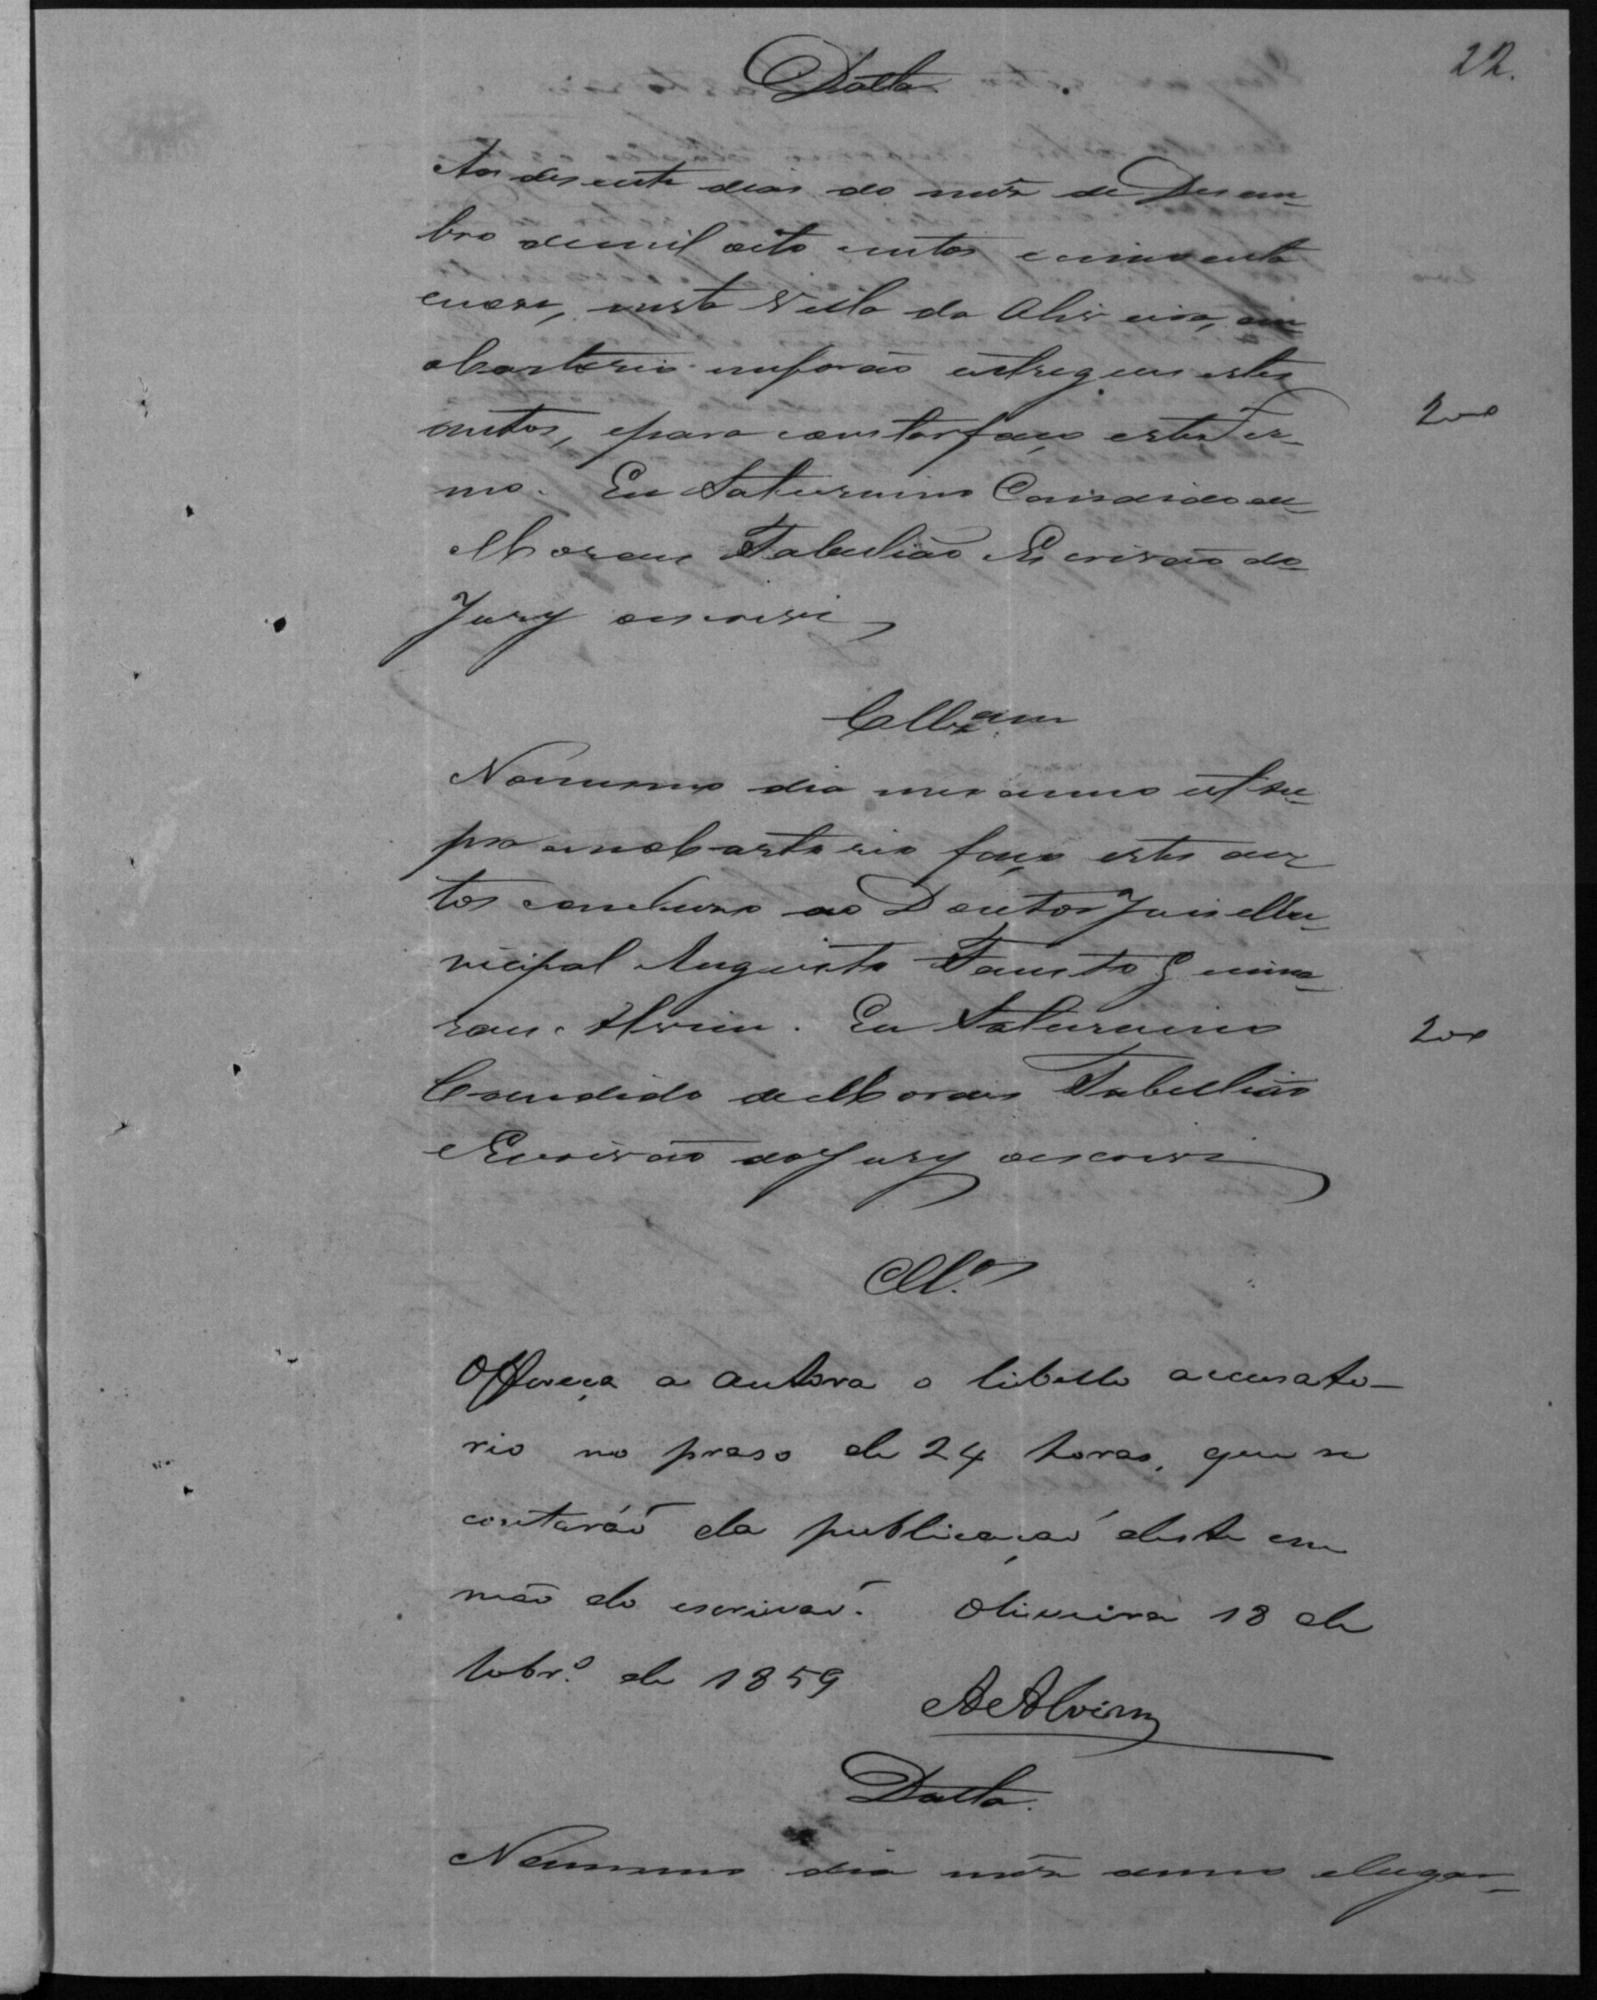 22.
Datta
Aos desesete dias do mês de Desem-
bro de mil oito centos e cincoenta
e nove, nesta Villa da Oliveira, em
o Cartorio me forão entregues estes
autos, e para constar faço este Ter-
mo. Eu Saturnino Candido de
Moraes Tabelião Escrivão do
Jury o escrevi
200
Cllz.am
No mesmo dia mes anno ut su-
pra em o Cartorio faço estes au-
tos concluzos ao Doutor Juis Mu-
nicipal Augusto Fausto Guima-
raes Alvim. Eu Saturnino
Candido de Moraes Tabellião
Escrivão do Jury o escrevi
200
Cll.os
Offereça a autora o libello accusato-
rio no praso de 24 horas, que se
contaráõ da publicação deste em
mão do escrivão. Oliveira 18 de
de 1859
A Alvim
Datta.
No mesmo dia mês anno e lugar